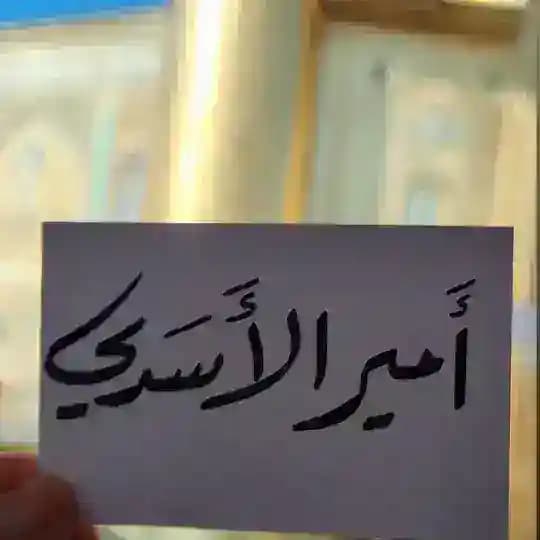 أَمير الأَسَدي